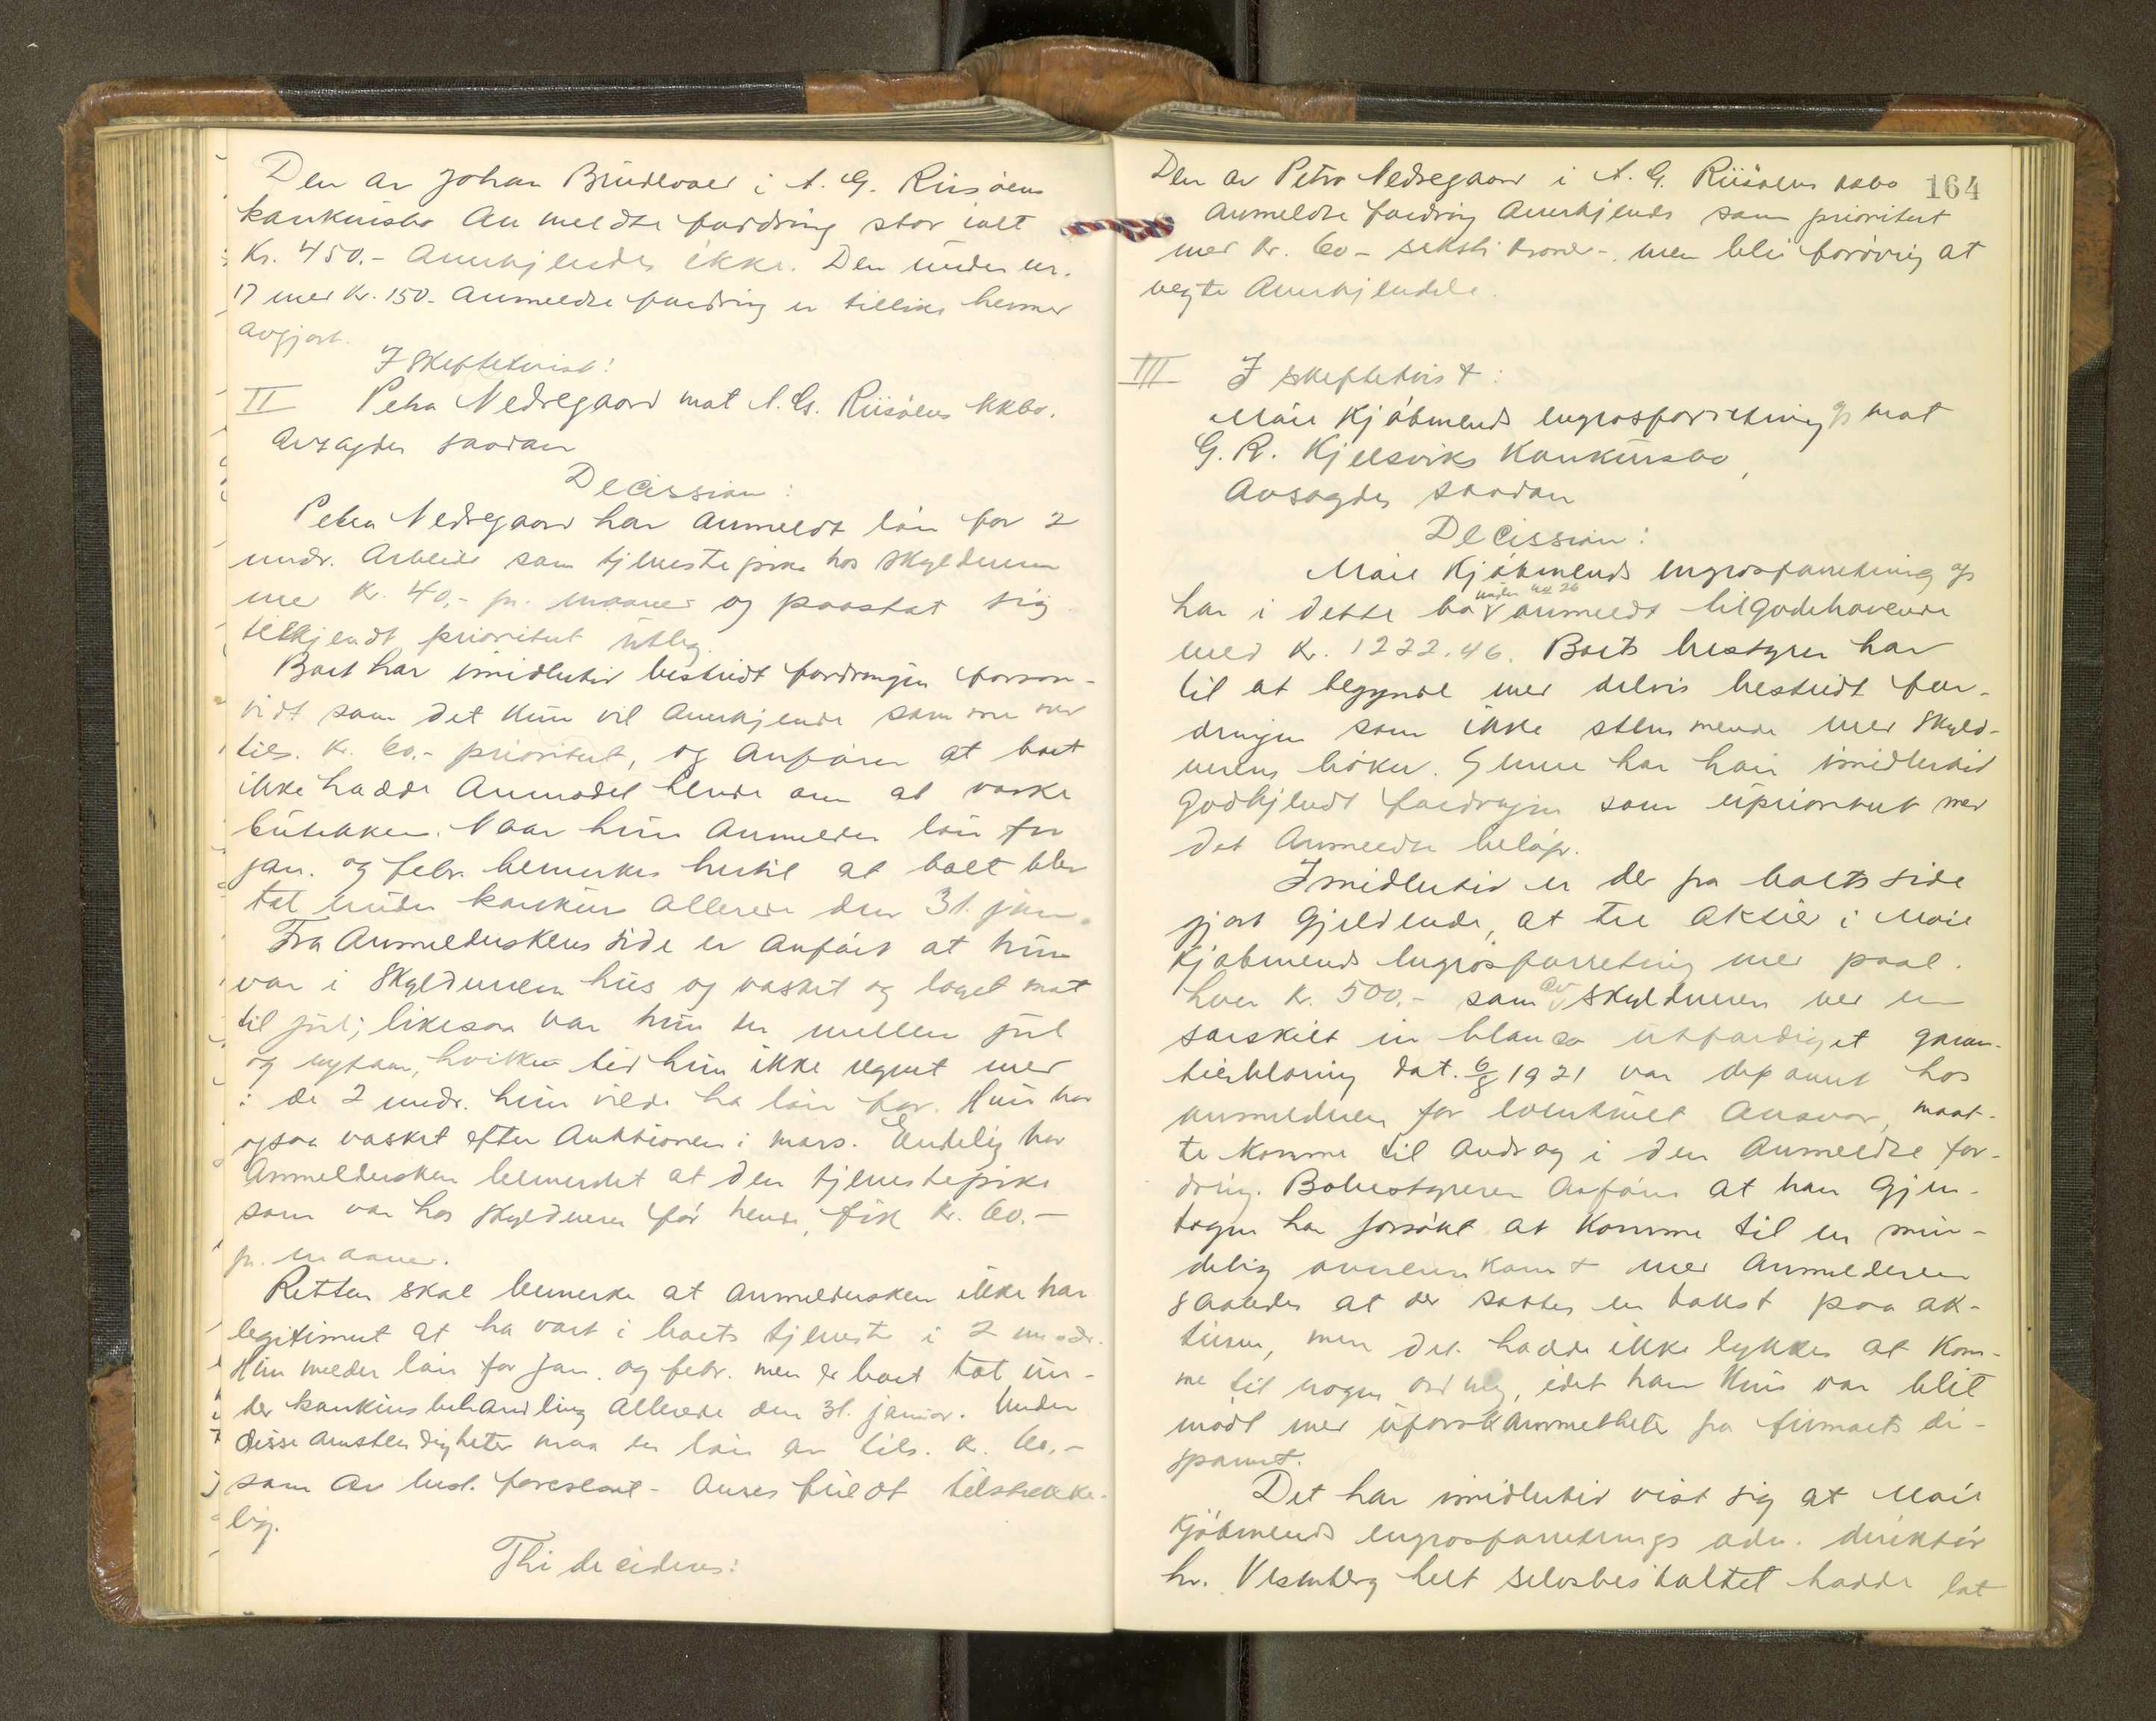 Den av Johan Brudevoll i A. G. Riisøens
konkursbo anmeldte fordring stor ialt
Kr. 450.- anerkjendes ikke. Den under nr.
17 med Kr. 150.- anmeldte fordring er tillike hermed
avgjort.
I skiftetvist:
II Petra Nedregaard mot A. G. Riisøens kkbo.
avsagdes saadan
Decission:
Petra Nedregaard har anmeldt løn for 2
mndr. arbeide som tjenestepike hos skyldneren
med Kr. 40,- pr. maaned og paastat sig
tilkjendt prioritert utlæg.
Boet har imidlertid bestridt fordringen forsaa-
vidt som det kun vil anerkjende samme med
tils. Kr. 60.- prioritert, og anfører at boet
ikke hadde anmodet hende om at vaske
butikken. Naar hun anmelder løn for
jan. og febr. bemerkes hertil at boet blev
tat under konkurs allerede den 31. jan.
Fra anmelderskens side er anført at hun
var i skyldnerens hus og vasket og laget mat
til jul; likesaa var hun der mellem jul
og nytaar, hvilken tid hun ikke regnet med
i de 2 mndr. hun vilde ha løn for. Hun har
ogsaa vasket efter auktionen i mars. Endelig har
anmeldersken bemerket at den tjenestepike
som var hos skyldneren før hende, fik Kr. 60.-
pr. maaned.
Retten skal bemerke at anmeldersken ikke har
legitimert at ha vært i boets tjeneste i 2 mndr.
Hun melder løn for jan. og febr. men er boet tat un-
der konkursbehandling allerede den 31. januar. Under
disse omstendigheter maa en løn av tils. kr. 60.-
som av best. foreslaat - anses fuldt tilstrække-
lig.
Thi decideres:
164
Den av Petra Nedregaard i A. G. Riisøens kkbo
anmeldte fordring anerkjendes som prioritert
med kr. 60 - seksti kroner -, men blir forøvrig at
negte anerkjendelse.
III I skiftetvist:
Møre Kjøbmænds engrosforretning % mot
G. R. Kjelsviks konkursbo,
avsagdes saadan
Decission:
Møre Kjøbmænds engrosforretning %
under nr 26
har i dette bo anmeldt tilgodehavende
med Kr. 1222.46. Boets bestyrer har
til at begynde med delvis bestridt for-
dringen som ikke stemmende med skyld-
nerens bøker. Senere har han imidlertid
godkjendt fordringen som uprioritert med
det anmeldte beløp.
Imidlertid er der fra boets side
gjort gjeldende, at tre aktier i Møre
Kjøbmænds engrosforretning med paal.
hver kr. 500.- som av skyldneren ved en
særskilt in blanco utfærdiget garan-
tierklæring dat. 6/8 1921 var deponert hos
anmelderen for eventuelt ansvar, maat-
te komme til avdrag i den anmeldte for-
dring. Bobestyreren anfører at han gjen-
tagen har forsøkt at komme til en min-
delig overenskomst med anmelderen
saaledes at der sattes en takst paa ak-
tierne, men det hadde ikke lykkes at kom-
me til nogen ordning, idet han kun var blit
møtt med uforskammetheter fra firmaets di-
sponent.
Det har imidlertid vist sig at Møre
Kjøbmænds engrosforretnings adm. direktør
hr. Vestnberg helt selvbestaltet hadde lat